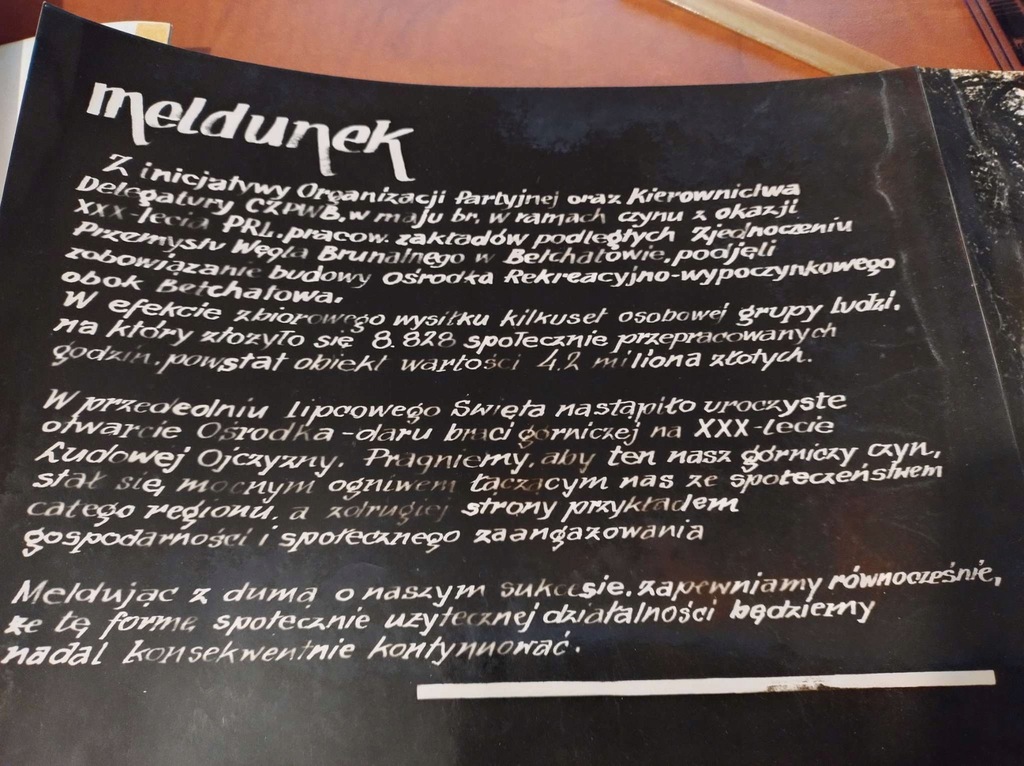 meldunek
Z inicjatywy Organizacji Partyjnej oraz Kierownictwa
Delegatury CZPWB, w maju br. w ramach czynu z okazji
XXX-lecia PRL, pracow. zakładów podległych Zjednoczeniu
Przemysłu Węgla Brunalnego w Bełchatowie, podjęli
zobowiązanie budowy Ośrodka Rekreacyjno-wypoczynkowego
obok Bełchatowa.
W efekcie zbiorowego wysiłku kilkuset osobowej grupy ludzi,
na który złożyło się 8.828 społecznie przepracowanych
godzin, powstał obiekt wartości 4,2 miliona złotych.
W przededniu lipcowego Święta nastąpiło uroczyste
otwarcie Ośrodka - daru braci górniczej na XXX-lecie
Ludowej Ojczyzny. Pragniemy, aby ten nasz górniczy czyn,
stał się, mocnym ogniwem łączącym nas ze społeczeństwem
całego regionu, a z drugiej strony przykładem
gospodarności i społecznego zaangażowania
Meldując z dumą o naszym sukcesie, zapewniamy równocześnie,
że tę formę społecznie użytecznej działalności będziemy
nadal konsekwentnie kontynuować.